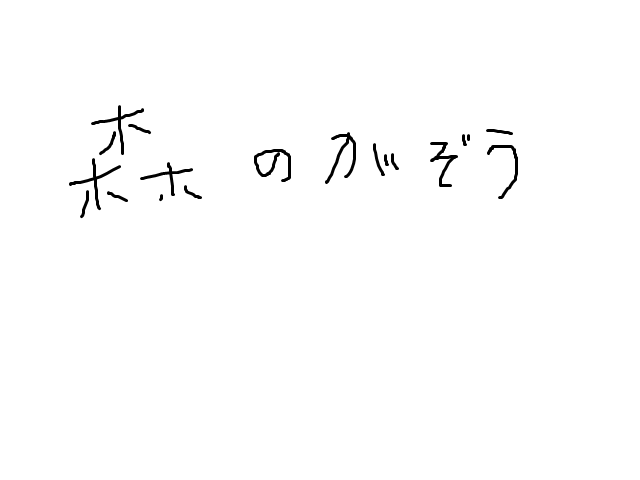 森のがぞう